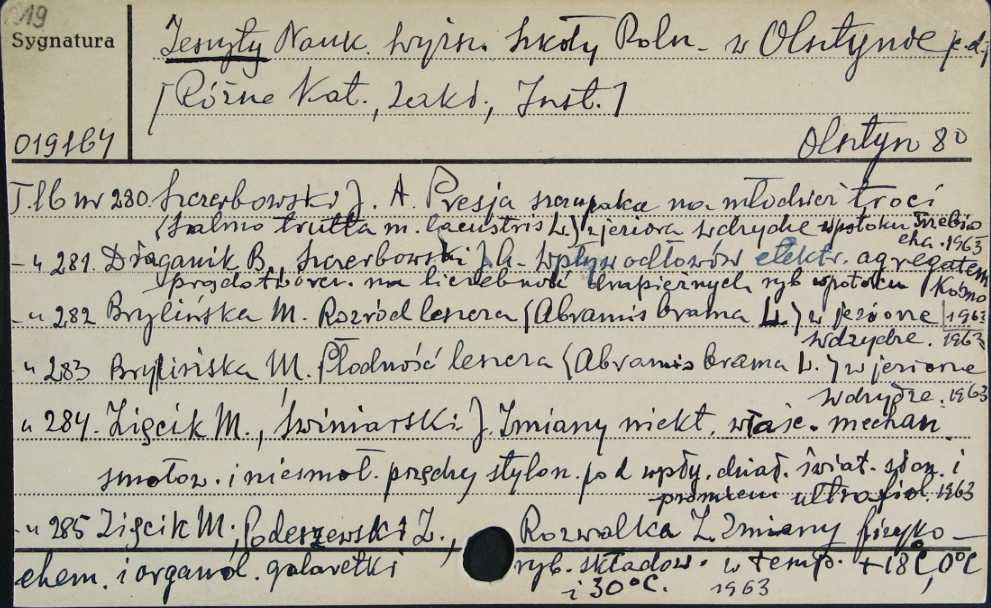 019
Sygnatura
Zeszyty Nauk. Wyższ. Szkoły Roln. w Olsztynie /c.d./
/Różne Kat., zakł., Inst./
019164
Olsztyn 80
T.16 nr 280. Szczerbowski J. A. Presja szczupaka na młodzież troci
(Salmo trutta m. lacustris L.) z jeziora Wdzydze w potoku Trzebio
cha. 1963
-"- 281. Draganik B., Szczerbowski J.A. Wpływ odłowów elektr. agregatem
prądotwórcz. na liczebność drapieżnych ryb w potoku /Kośno/
1963
-"- 282 Brylińska M. Rozród leszcza (Abramis brama L.) w jeziorze
Wdzydze. 1963
" 283 Brylińska M. Płodność leszcza (Abramis brama L.) w jeziorze
Wdzydze. 1963
" 284. Zięcik M., Świniarski J. Zmiany niekt. właśc. mechan.
smołow. i niesmoł. przędzy stylon. pod wpły. dział. świat. słon. i
promieni ultrafiol. 1963
-"- 285 Zięcik M., Podeszewski Z., Rozwałka Z. Zmiany fizyko-
chem. i organol. galaretki ryb. składow. w temp. +18°C, 0°C
i 30°C. 1963